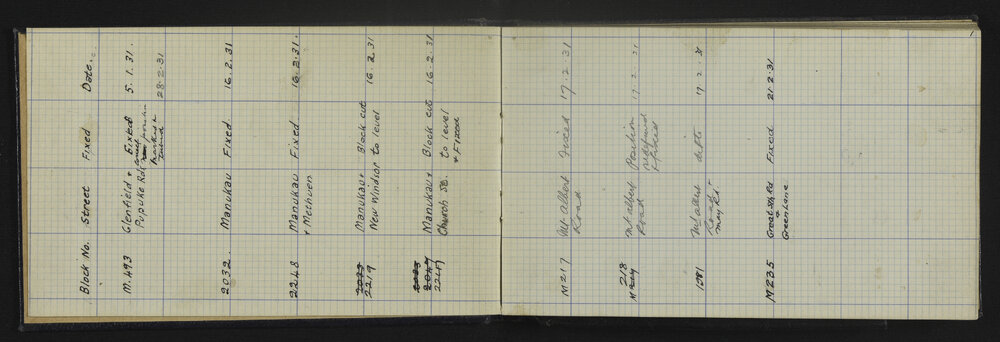 Block No. Street Fixed Date.
M.493 Glenfield + Fixed 5.1.31.
Pupuke Rds
28.2.31
2032. Manukau Fixed 16.2.31
2248 Manukau Fixed 16.2.31.
+ Methuen
2219 Manukau + Block cut 16.2.31
New Windsor to level
Manukau + Block cut 16.2.31
Church St. to level
+ Fixed
M217 Mt Albert Fixed 17.2.31
Road
218 Mt albert Position 17.2.31
Road redefined
+ fixed
Mt albert ditto 17.2.31
Road +
May Rd
M235 Great Sth Rd Fixed 21.2.31
+
Green Lane